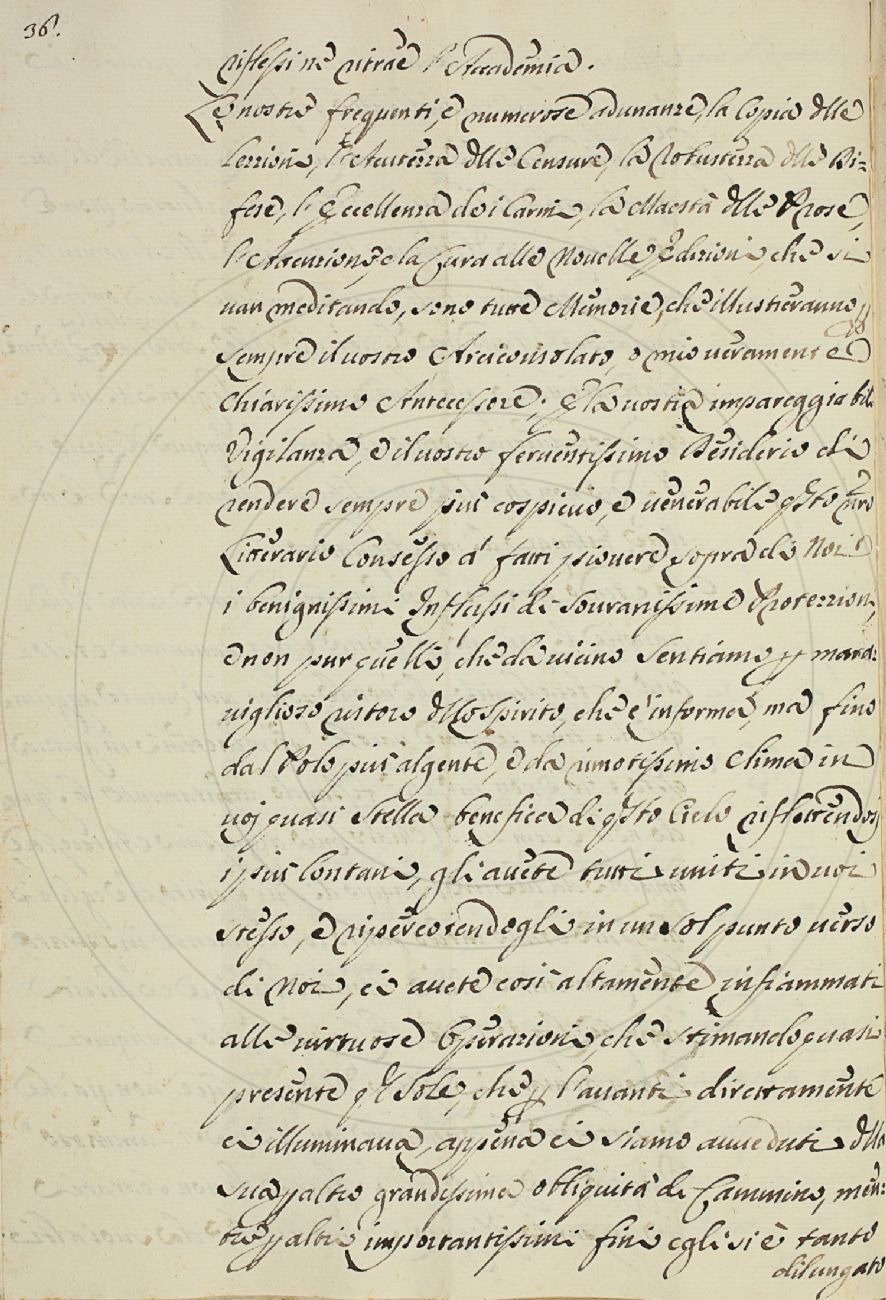 36.
riflessi ne ritrae l'Accademia.
Le nostre frequenti, e numerose adunanze, la Copia dlle
Lezzioni, l'Acutezza dlle Censure, la Robustezza dlle Di=
fese, l'Eccellenza de i Carmi, la Maestà dlle Prose,
l'Attenzione, e la Cura alle Novelle Edizioni, che si
van meditando, sono tutte Memorie, che illustreranno
sempre il vostro Arciconsolato, o mio veramente
Chiarissimo Antecessore. E la vostra impareggiabil
Vigilanza, e il vostro ferventissimo Desiderio di
rendere sempre più cospicuo, e venerabile qsto nro
Litterario Consesso à fatti piovere sopra di Noi
i benignissimi Influssi di Sovranissima Protezzione,
e non pur quelli, che da vicino sentiamo p mara=
viglioso ristoro dllo Spirito, che c'informa, ma fino
dal Polo più algente, e da rimotissimo Clima in
voi quasi Stella benefica di qsto Cielo riflettendosi
i più lontani, gli avete tutti uniti in voi
stesso, e ripercotendogli in un sol punto verso
di Noi, ci avete così altamente infiammati
alle virtuose Operazioni, che stimando quasi
presente ql Sole, che p l'avanti direttamente
ci illuminava, appena ci siamo avveduti dlla
sua p altro grandissima obliquità di Cammino, men=
tre p altri importantissimi fini egli si è tanto
dilungato